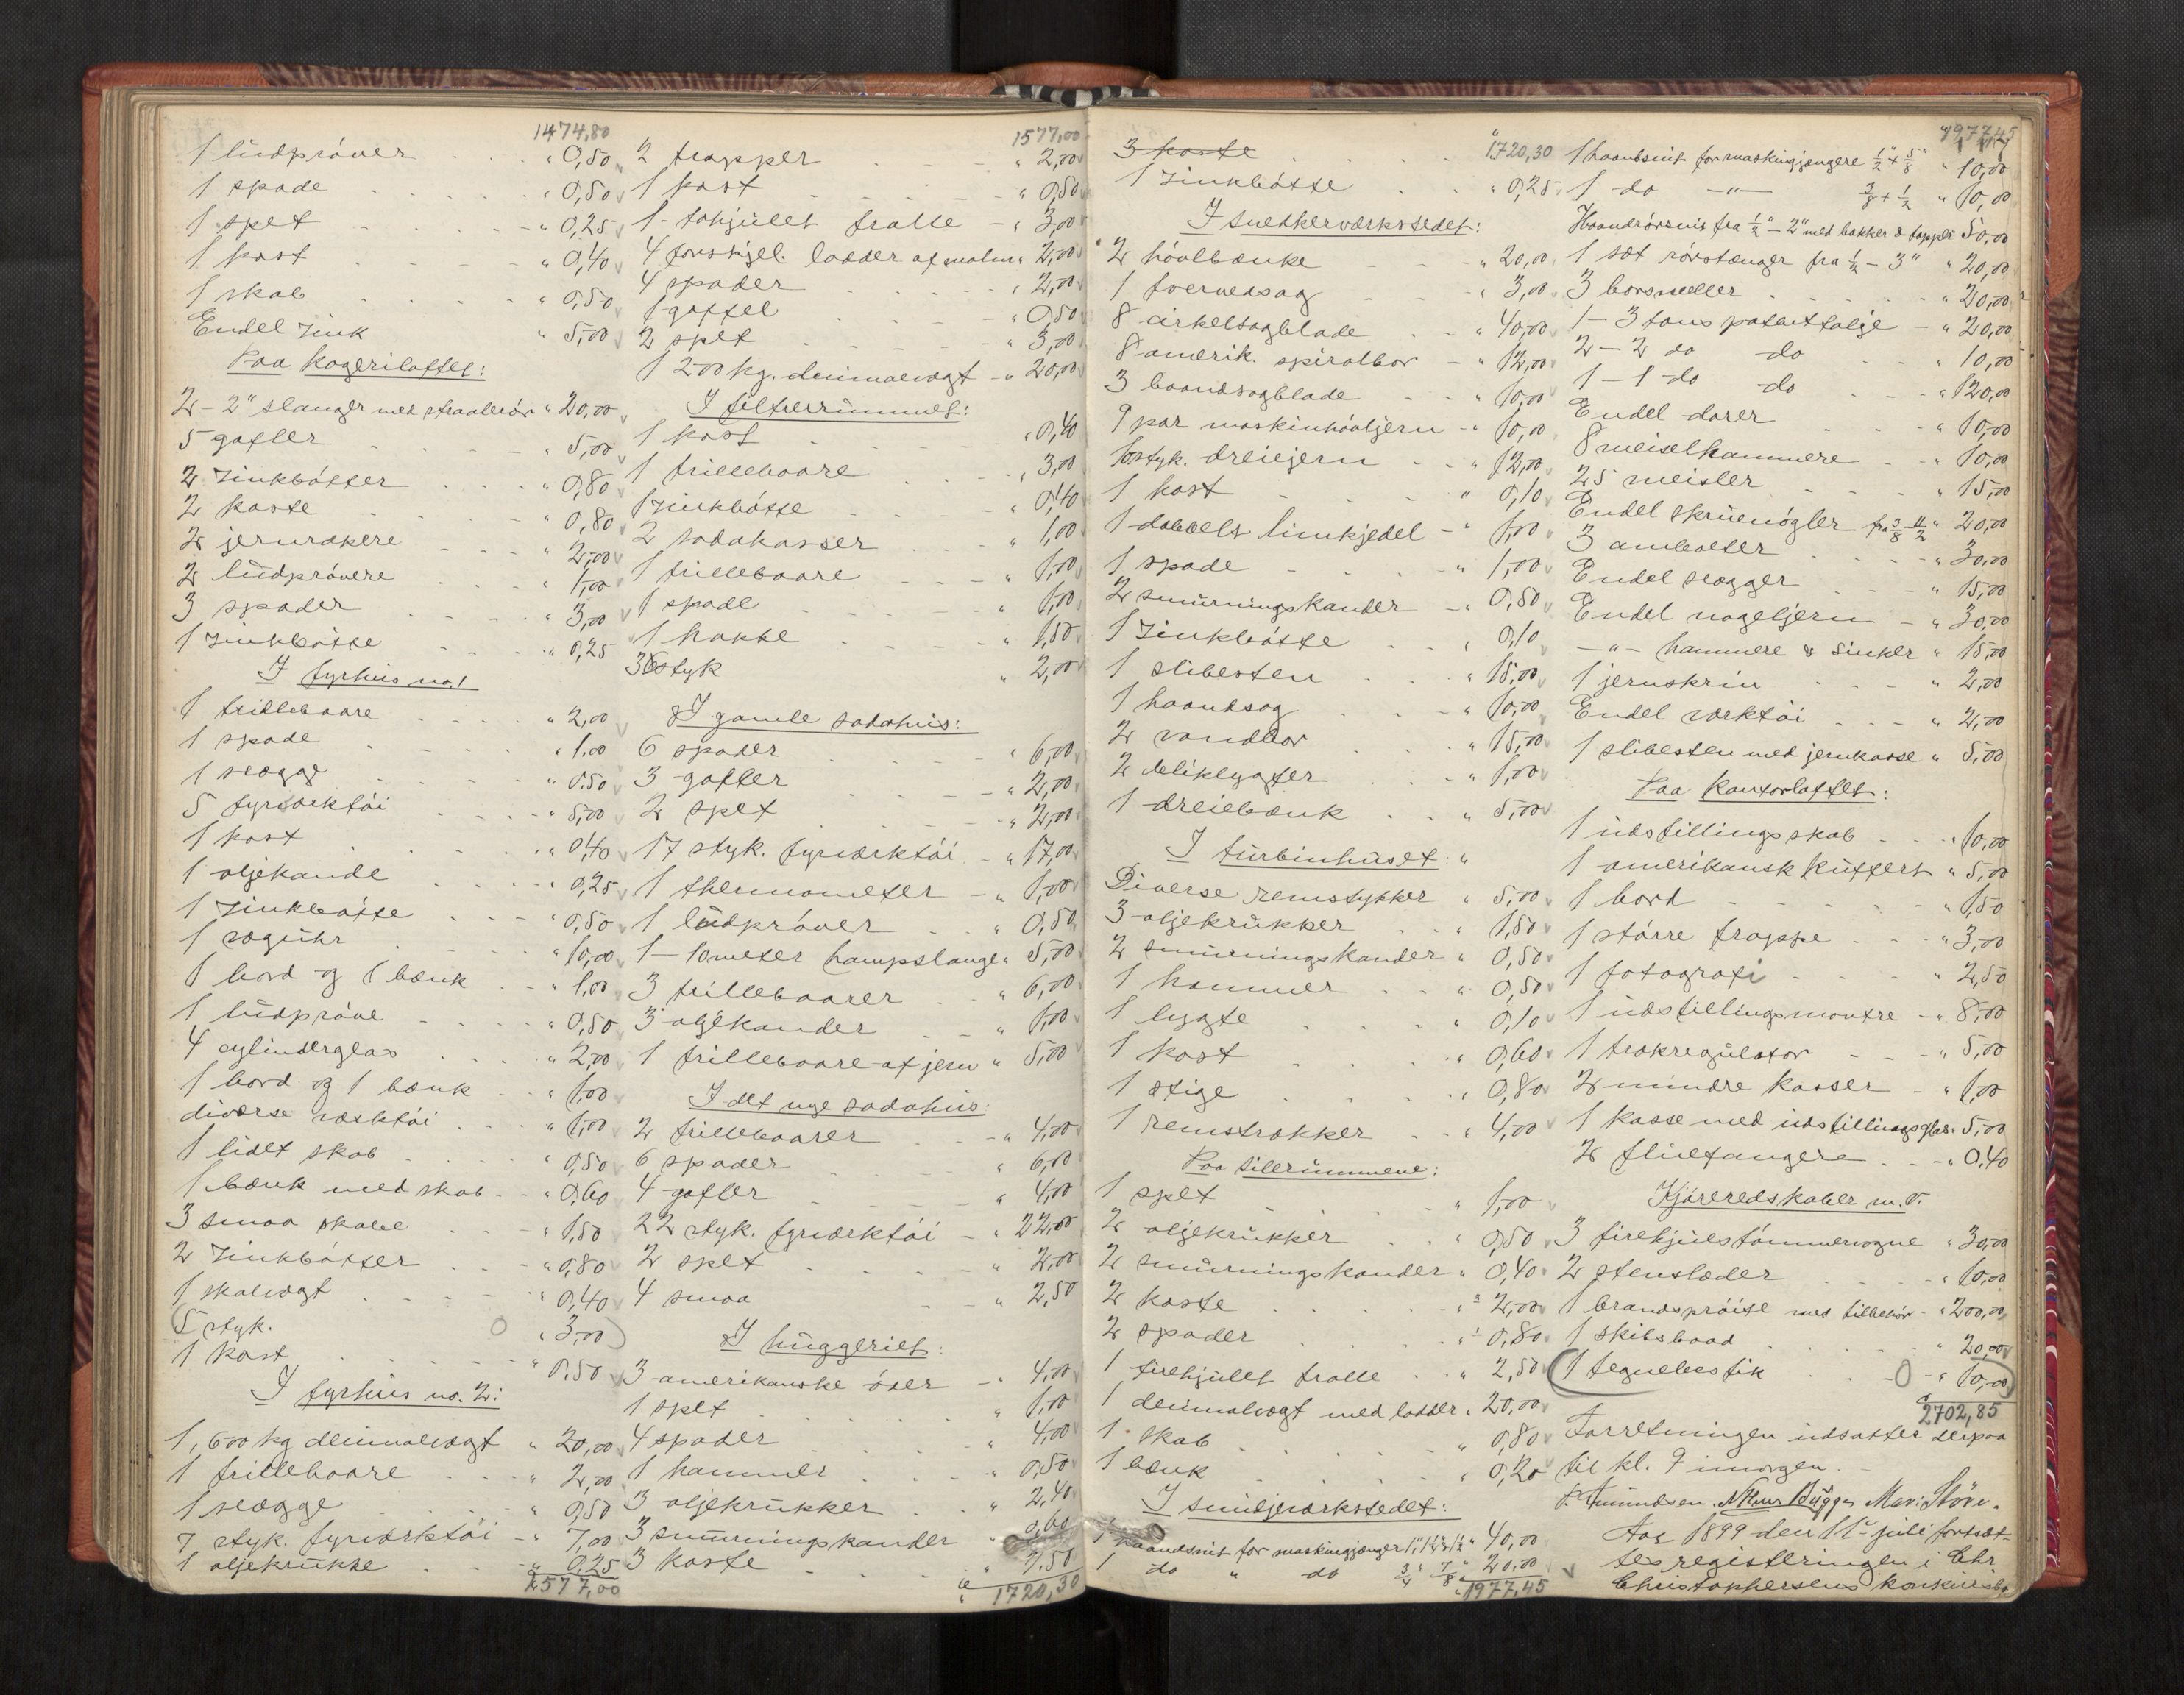 1474,80
1 ludpröver " 0,50
1 spade " 0,50
1 spet " 0,25
1 kost " 0,40
1 skab " 0,50
Endel zink " 5,00
Paa kogeriloftet:
2 - 2" slanger med straalerör " 20,00
5 gafler " 5,00
2 zinkbötter " 0,80
2 koste " 0,80
2 jernrakere " 2,00
2 ludprövere " 1,00
3 spader " 3,00
1 zinkbötte " 0,25
I fyrhus no. 1
1 trillebaare " 2,00
1 spade " 1,00
1 slægge " 0,50
5 fyrværktöi " 5,00
1 kost " 0,40
1 oljekande " 0,25
1 zinkbötte " 0,50
1 væguhr " 10,00
1 bord og 1 bænk " 1,00
1 ludpröve " 0,50
4 cylinderglas " 2,00
1 bord og 1 bænk " 1,00
diverse værktöi " 1,00
1 lidet skab " 0,50
1 bænk med skab " 0,60
3 smaa skabe " 1,50
2 zinkbötter " 0,80
1 skalvægt " 0,40
(5 styk. 0 " 3,00)
1 kost " 0,50
I fyrhus no. 2:
1, 600 kg decimalvægt " 20,00
1 trillebaare " 2,00
1 slægge " 0,50
7 styk. fyrværktöi " 7,00
1 oljekrukke " 0,25
1577,00
1577,00
2 trapper " 2,00
1 kost " 0,50
1 - tohjulet tralle " 3,00
4 forskjel. lodder af malm " 2,00
4 spader " 2,00
1 gaffel " 0,50
2 spet " 3,00
1 200 kg. decimalvægt " 20,00
I filterrummet:
1 kost " 0,40
1 trillebaare " 3,00
1 zinkbötte " 0,40
2 sodakasser " 1,00
1 trillebaare " 1,00
1 spade " 1,00
1 hakke " 1,50
36 styk " 2,00
I gamle sodahus:
6 spader " 6,00
3 gafler " 2,00
2 spet " 2,00
17 styk. fyrværktöi " 17,00
1 thermometer " 1,00
1 ludpröver " 0,50
1 - 10 meter hampslange " 5,00
3 trillebaarer " 6,00
3 oljekander " 1,00
1 trillebaare af jern " 5,00
I det nye sodahus
2 trillebaarer " 4,00
6 spader " 6,00
4 gafler " 4,00
22 styk. fyrværktöi " 22,00
2 spet " 2,00
4 smaa " 2,50
I huggeriet:
3 amerikanske öxer " 4,00
1 spet " 1,00
4 spader " 4,00
1 hammer " 0,50
3 oljekrukker " 2,40
3 smurningskander " 0,60
3 koste " 1,50
" 1720,30
3 koste " 1720,30
1 zinkbötte " 0,25
I snedkerværkstedet:
2 hövlbænke " 20,00
1 tvervedsag " 3,00
8 cirkelsagblade " 40,00
8 amerik. spiralbor " 12,00
3 baandsagblade " 10,00
9 par maskinhövljern " 10,00
10 styk. dreiejern " 12,00
1 kost " 0,10
1 dobbelt limkjedel " 1,00
1 spade " 1,00
2 smurningskander " 0,50
1 zinkbötte " 0,10
1 slibesten " 15,00
1 haandsag " 10,00
2 vandbor " 15,00
2 bliklygter " 1,00
1 dreiebænk " 5,00
I turbinhuset:
Diverse remstykker " 5,00
3 oljekrukker " 1,50
2 smurningskander " 0,50
1 hammer " 0,50
1 lygte " 0,10
1 kost " 0,60
1 stige " 0,80
1 remstrækker " 4,00
Paa silerummene:
1 spet " 1,00
2 oljekrukker " 0,50
2 smurningskander " 0,40
2 koste " 2,00
2 spader " 0,80
1 firehjulet tralle " 2,50
1 decimalvægt med lodder " 20,00
1 skab " 0,80
1 bænk " 0,20
I smidjeværkstedet:
1 haandsnit for maskingjænger " 40,00
1 do " do 3/4" 7/8" " 20,00
" 1977,45
1977,45
1 haandsnit for maskingjængere 1/2" + 5/8" " 10,00
1 do - " - 3/8 + 1/2 " 10,00
Haandrörsnit fra 1/2" - 2" med bakker & tapper 50,00
1 sæt rörstænger fra 1/2 - 3" " 20,00
3 borsveller " 20,00
1 - 3 tons patenttalje " 20,00
2 - 2 do do " 10,00
1 - 1 do do " 120,00
Endel dorer " 10,00
8 meiselhammere " 10,00
25 meisler " 15,00
Endel skruenögler fra 3/8 - 11/2 " 20,00
3 ambolter " 30,00
Endel slægger " 15,00
Endel nageljern " 30,00
- " - hammere & sinker " 15,00
1 jernskrin " 2,00
Endel værktöi " 2,00
1 slibesten med jernkasse " 5,00
Paa kontorloftet:
1 udstillingsskab " 10,00
1 amerikansk kuffert " 5,00
1 bord " 1,50
1 större trappe " 3,00
1 fotografi " 2,50
1 udstillingsmontre " 8,00
1 trækregulator " 5,00
2 mindre kasser " 1,00
1 kasse med udstillingsglas " 5,00
2 fluefangere " 0,40
Kjöreredskaber m.v.
3 firehjulstömmervogne " 30,00
2 stenslæder " 10,00
1 brandspröite med tilbehör " 200,00
1 skibsbaad 20,00
(1 tegnebestik 0 " 10,00)
2702,85
Forretningen udsattes derpaa
til kl. 9 imorgen.
P. Amundsen. Nils Bugge Mar: Störe.
Aar 1899 den 11te juli fortsat-
tes registreringen i Chr
Christophersens konkursbo